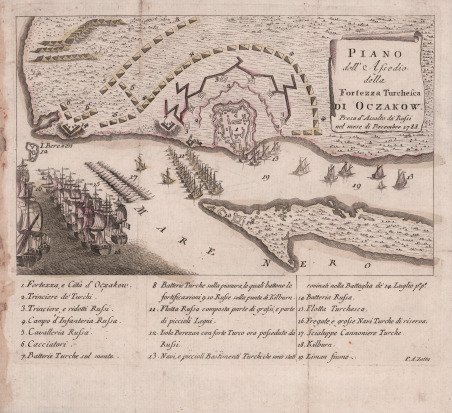 PIANO
dell' Assedio
della
Fortezza Turchesca
DI OCZAKOW.
Presa d'Assalto da' Russi
nel mese di Decembre 1788
I. Berezen
12
17
13
19
19
MARE NERO
1. Fortezza, e Città d'Oczakow.
2. Trinciere de' Turchi.
3. Trinciere, e ridotti Russi
4. Campo d'Infanteria Russa.
5. Cavalleria Russa.
6. Cacciatori.
7. Batterie Turche sul monte.
8. Batterie Turche sulla pianura, le quali battono le
fortificazioni 9.10 Russe sulla punta di Kilburn
11. Flotta Russa composta parte de grossi, e parte
di piccioli Legni
12. Isola Berezen con forte Turco ora posseduta da
Russi.
13. Navi, e piccioli Bastimenti Turchi che
rovinati nella Battaglia de' 14. Luglio
14. Batteria Russa.
15. Flotta Turchesca.
16. Fregate e grosse Navi Turche di riserva.
17. Scialuppe Cannoniere Turche.
18. Kilburn.
19. Liman fiume.
P. A. Zatta